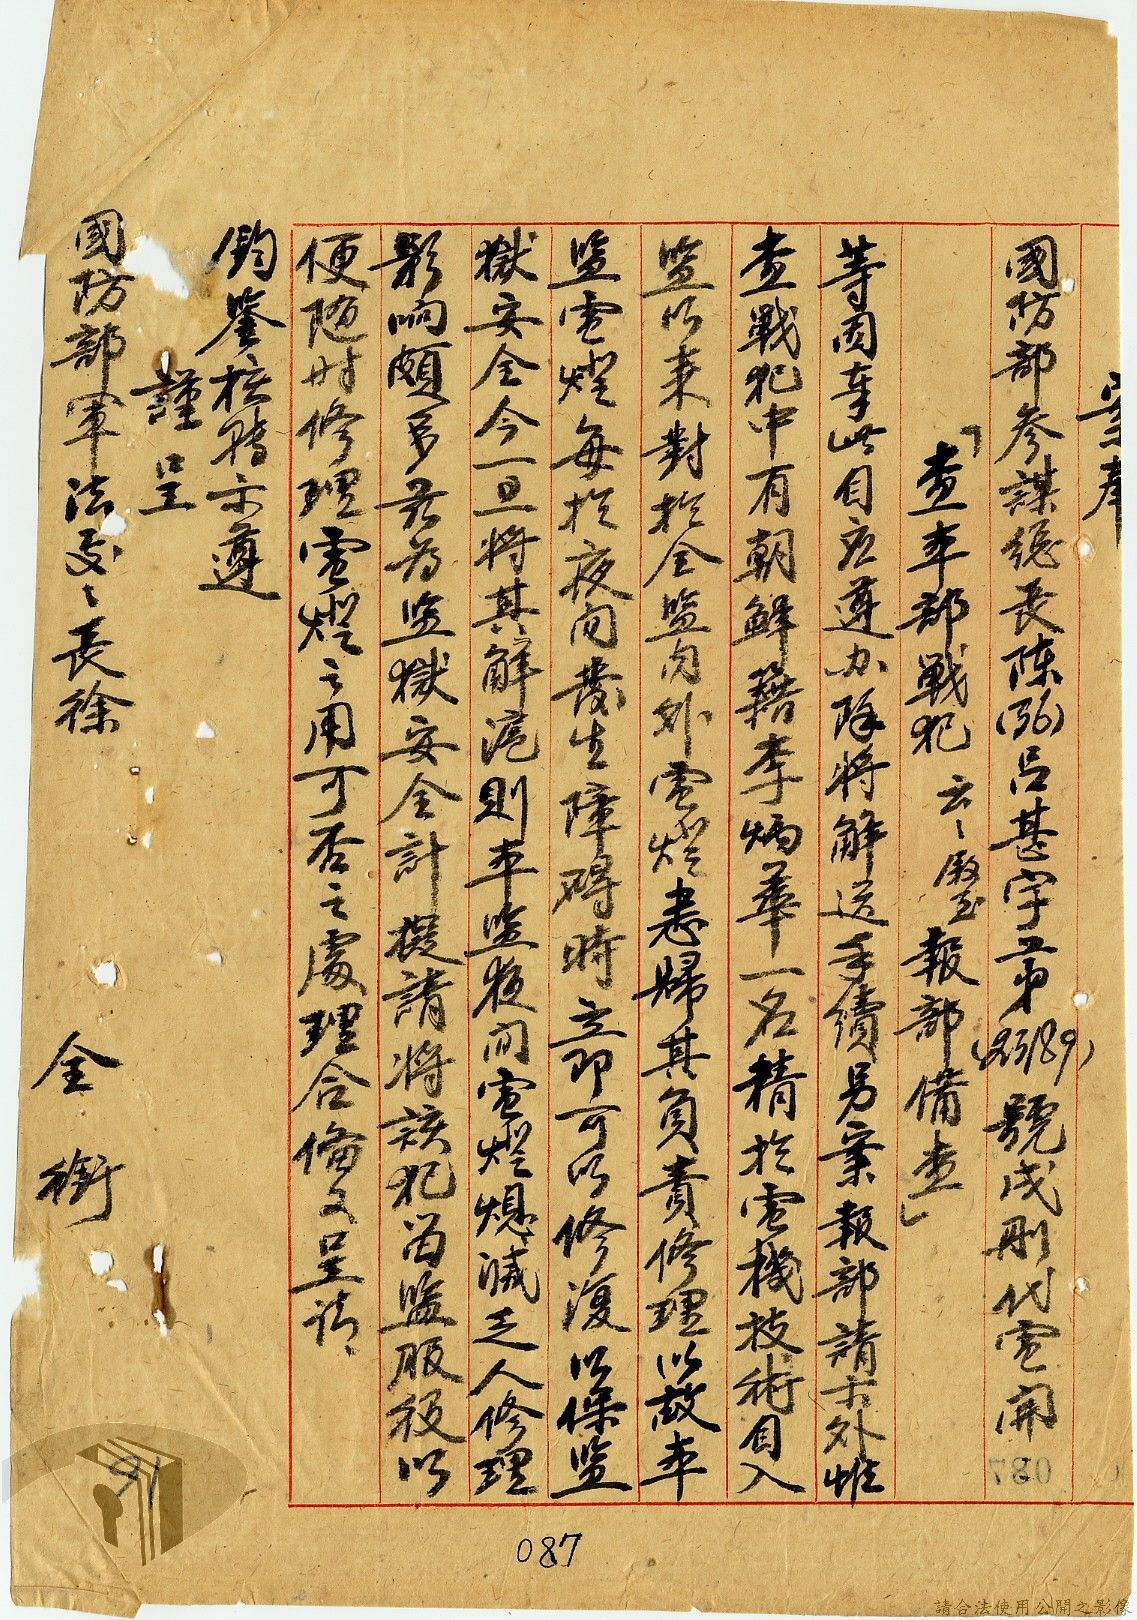 案奉
國防部參謀總長陳(36)呂甚字第(23189)號戌刪代電開
「查本部戰犯云々 報部備查」
等因奉此自应遵办除將解送手續另案報部請示外惟
查戰犯中有朝鮮籍李炳華一名精於電機技術自入
监以來對於全监内外電燈悉歸其負責修理以故本
监電燈每於夜间發生障碍時立即可以修復以保监
獄安全今一旦將其解滬則本监夜间電燈熄滅乏人修理
影响頗多茲为监獄安全計擬請將該犯留监服役以
便随时修理電燈之用可否之處理合偹文呈请
鈞鑒核轉示遵
謹呈
國防部軍法處々長徐
全銜
91
087
087
請合法使用公開之影像